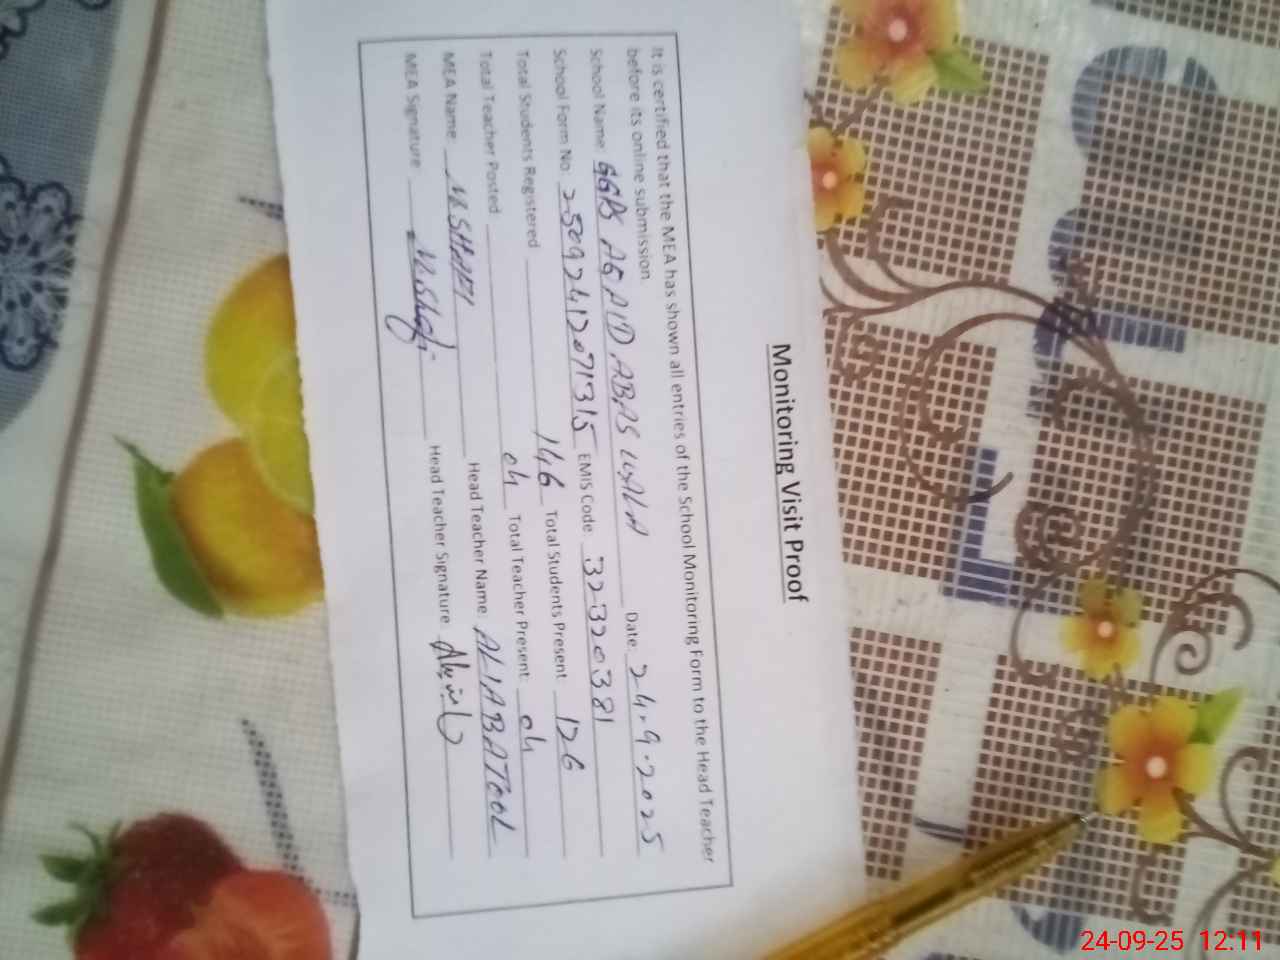 Monitoring Visit Proof
It is certified that the MEA has shown all entries of the School Monitoring Form to the Head Teacher
before its online submission.
School Name: GGPS ABAS WALA Date: 24.9.2025
School Form No: 25092412071315 EMIS Code: 32320381
Total Students Registered 146 Total Students Present: 126
Total Teacher Posted 04 Total Teacher Present: 04
MEA Name: M.SHAFI Head Teacher Name: ALIABATOOL
MEA Signature: M.Shafi Head Teacher Signature
24-09-25 12:11